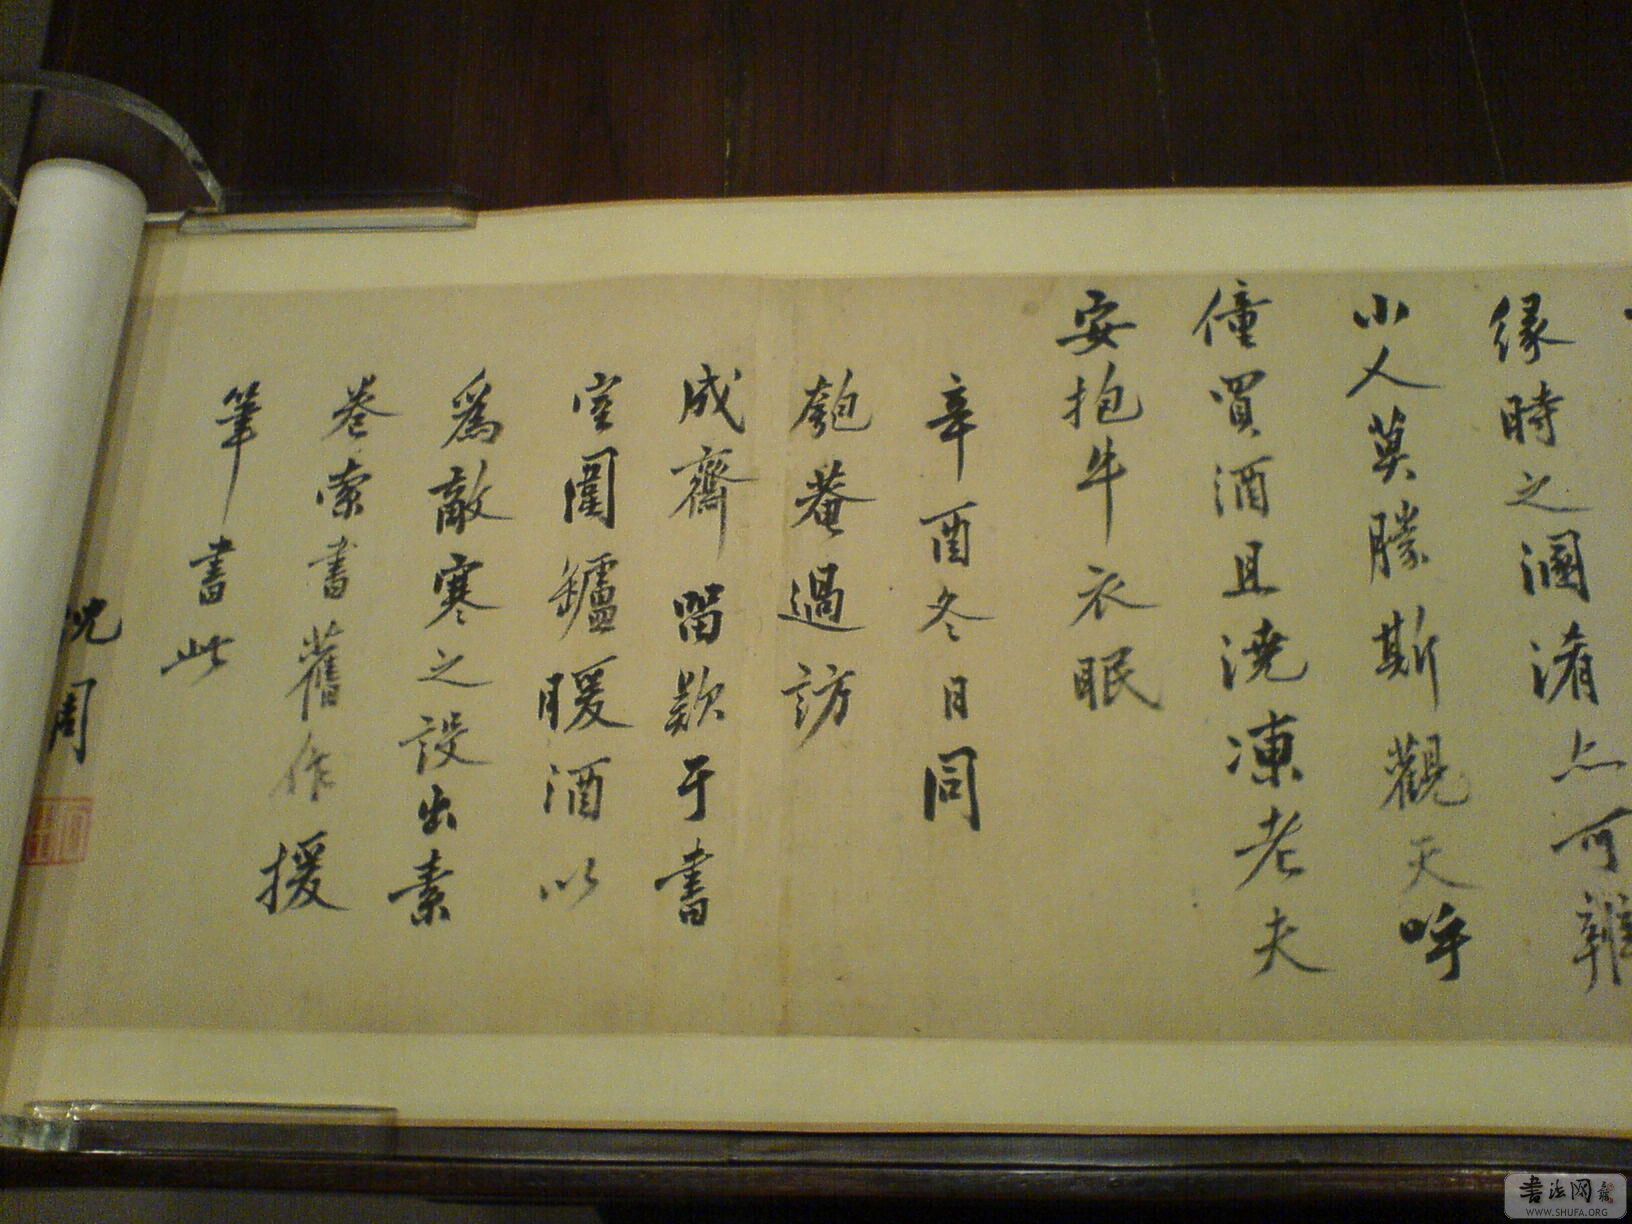 緣時之溷淆亦可雜
小人莫勝斯觀天哞
僮買酒且澆凍老夫
安抱牛衣眠
辛酉冬日同
匏菴過訪
成齋留欵于書
室圍鑪暖酒以
爲敵寒之設出素
卷索書舊作援
筆書此
沈周
書法网
WWW.SHUFA.ORG